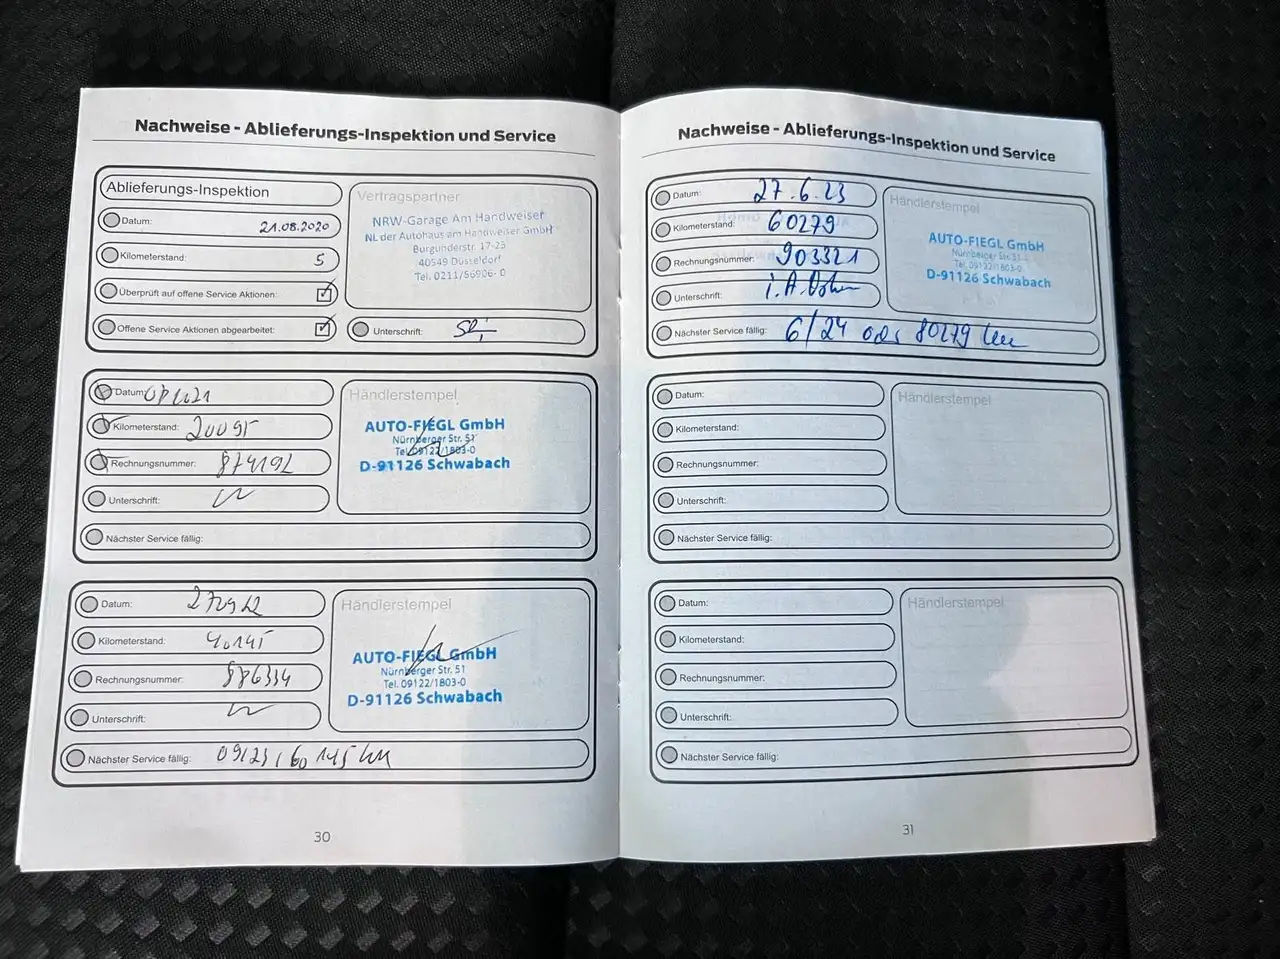 Nachweise - Ablieferungs-Inspektion und Service
Ablieferungs-Inspektion
Datum: 21.08.2020
Kilometerstand: 5
Überprüft auf offene Service Aktionen:
Offene Service Aktionen abgearbeitet:
Vertragspartner
NRW-Garage Am Handweiser
NL der Autohaus am Handweiser GmbH
Burgunderstr. 17-25
40549 Düsseldorf
Tel. 0211/56906- 0
Unterschrift:
Datum:
Kilometerstand: 20095
Rechnungsnummer: 874192
Unterschrift:
Nächster Service fällig:
Händlerstempel
AUTO-FIEGL GmbH
Nürnberger Str. 51
Tel. 09122/1803-0
D-91126 Schwabach
Datum: 270922
Kilometerstand: 40145
Rechnungsnummer: 886334
Unterschrift:
Händlerstempel
AUTO-FIEGL GmbH
Nürnberger Str. 51
Tel. 09122/1803-0
D-91126 Schwabach
Nächster Service fällig: 09/23 / 60 145 km
30
Nachweise - Ablieferungs-Inspektion und Service
Datum: 27.6.23
Kilometerstand: 60279
Rechnungsnummer: 903321
Unterschrift: i.A.
Händlerstempel
AUTO-FIEGL GmbH
Nürnberger Str. 51
Tel. 09122/1803-0
D-91126 Schwabach
Nächster Service fällig: 6/24 oder 80279 km
Datum:
Kilometerstand:
Rechnungsnummer:
Unterschrift:
Nächster Service fällig:
Händlerstempel
Datum:
Kilometerstand:
Rechnungsnummer:
Unterschrift:
Nächster Service fällig:
Händlerstempel
31